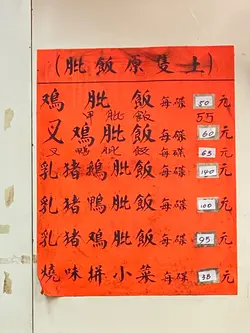 (肶飯原隻土)
鷄肶飯每碟50元
甲肶飯55
叉鷄肶飯每碟60元
叉鴨肶飯每碟65元
乳猪鵝肶飯每碟140元
乳猪鴨肶飯每碟100元
乳猪鷄肶飯每碟95元
燒味拼小菜每碟38元